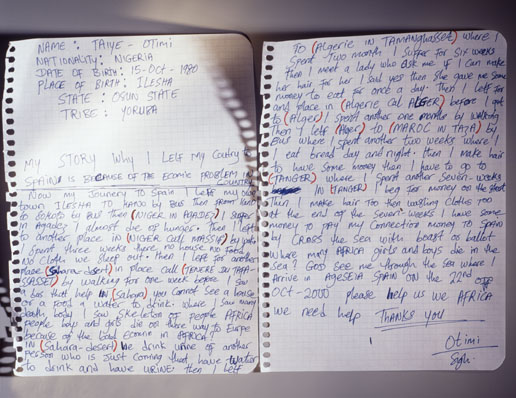 NAME : TAIYE - OTIMI
NATIONALITY : NIGERIA
DATE OF BIRTH : 15-OCT-1980
PLACE OF BIRTH : ILESHA
STATE : OSUN STATE
TRIBE : YORUBA
MY STORY Why I LEFT MY Country to
SPAIN is BECAUSE OF THE ECOMIC PROBLEM IN
COUNTRY
Now my Journery TO Spain I LEFT my
town ILESHA TO KANO by BUS then from KANO
to SOKOTO by BUS then (NIGER IN AGADEZ) I suffer
in Agadez I almost die of hunger. Then I left
to another place (NIGER CALL MASSIF) by
Spent three weeks here no food no
no Cloth we sleep out. then I left for another
place (Sahara-desert) in place call (TENERE
) by walking for one week before I saw
a bus that help IN (Sahara) you cannot see a house
or food or water to drink where I saw many
death body I saw skeleton of people AFRICA
people boy and girls die on there way to Europe
because of the bad Ecomic in AFRICA!
IN (Sahara-desert) We drink URINE of another
person who is just coming that have water
to drink and have URINE then I left
TO (Algerie IN TAMANGHASSET) where I
Spent two month I suffer for six weeks
then I meet a lady who ask me if I can make
her hair for her I said yes then she gave me some
money to eat for once a day. then I left for
and place in (Algerie Cal ALGER) before I got
to (Alger) I spent another one month by walking
Then I left (Alger) to (MAROC in TAZA) by
BUS where I spent another two weeks where
I eat bread day and night. then I make hair
to have some money then I have to go to
(TANGER) where I spent another Seven-weeks
IN TANGER I beg for money on the street
Then I make hair too then washing Clothes too
at the end of the Seven-weeks I have some
money to pay my connection money to SPAIN
by CROSS the SEA with boat or ballot
where many AFRICA girls and boys die in the
SEA? GOD SEE me through the SEA where I
Arrive in SPAIN on the 22nd OF
OCT-2000 please help us we AFRICA
we need help THANKS YOU
Otimi
Sign: